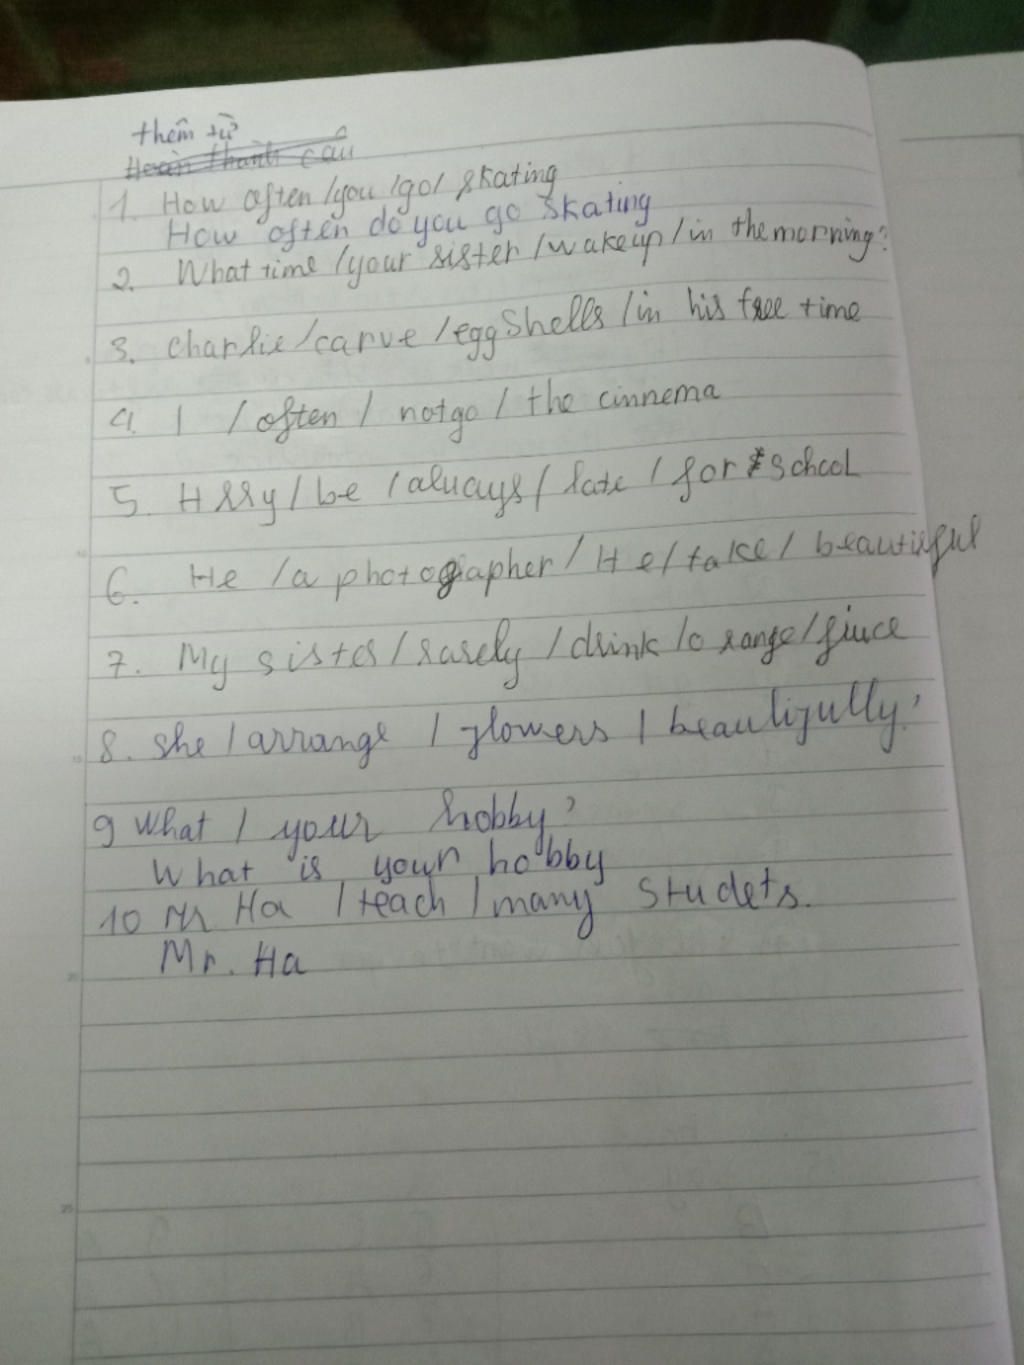 thêm từ
Hoàn thành câu
1. How often /you /go/ skating
How often do you go skating
2. What time /your sister /wake up / in the morning?
3. charlie /carve /egg Shells / in his free time
4. I / often / not go / the cinnema
5. Hrry / be / always / late / for school
6. He / a photographer / He / take / beautiful
7. My sister / rarely / drink / orange / jiuce
8. she / arrange / flowers / beautifully?
9 What / your hobby?
What is your hobby
10 Mr Ha / teach / many Studets.
Mr. Ha